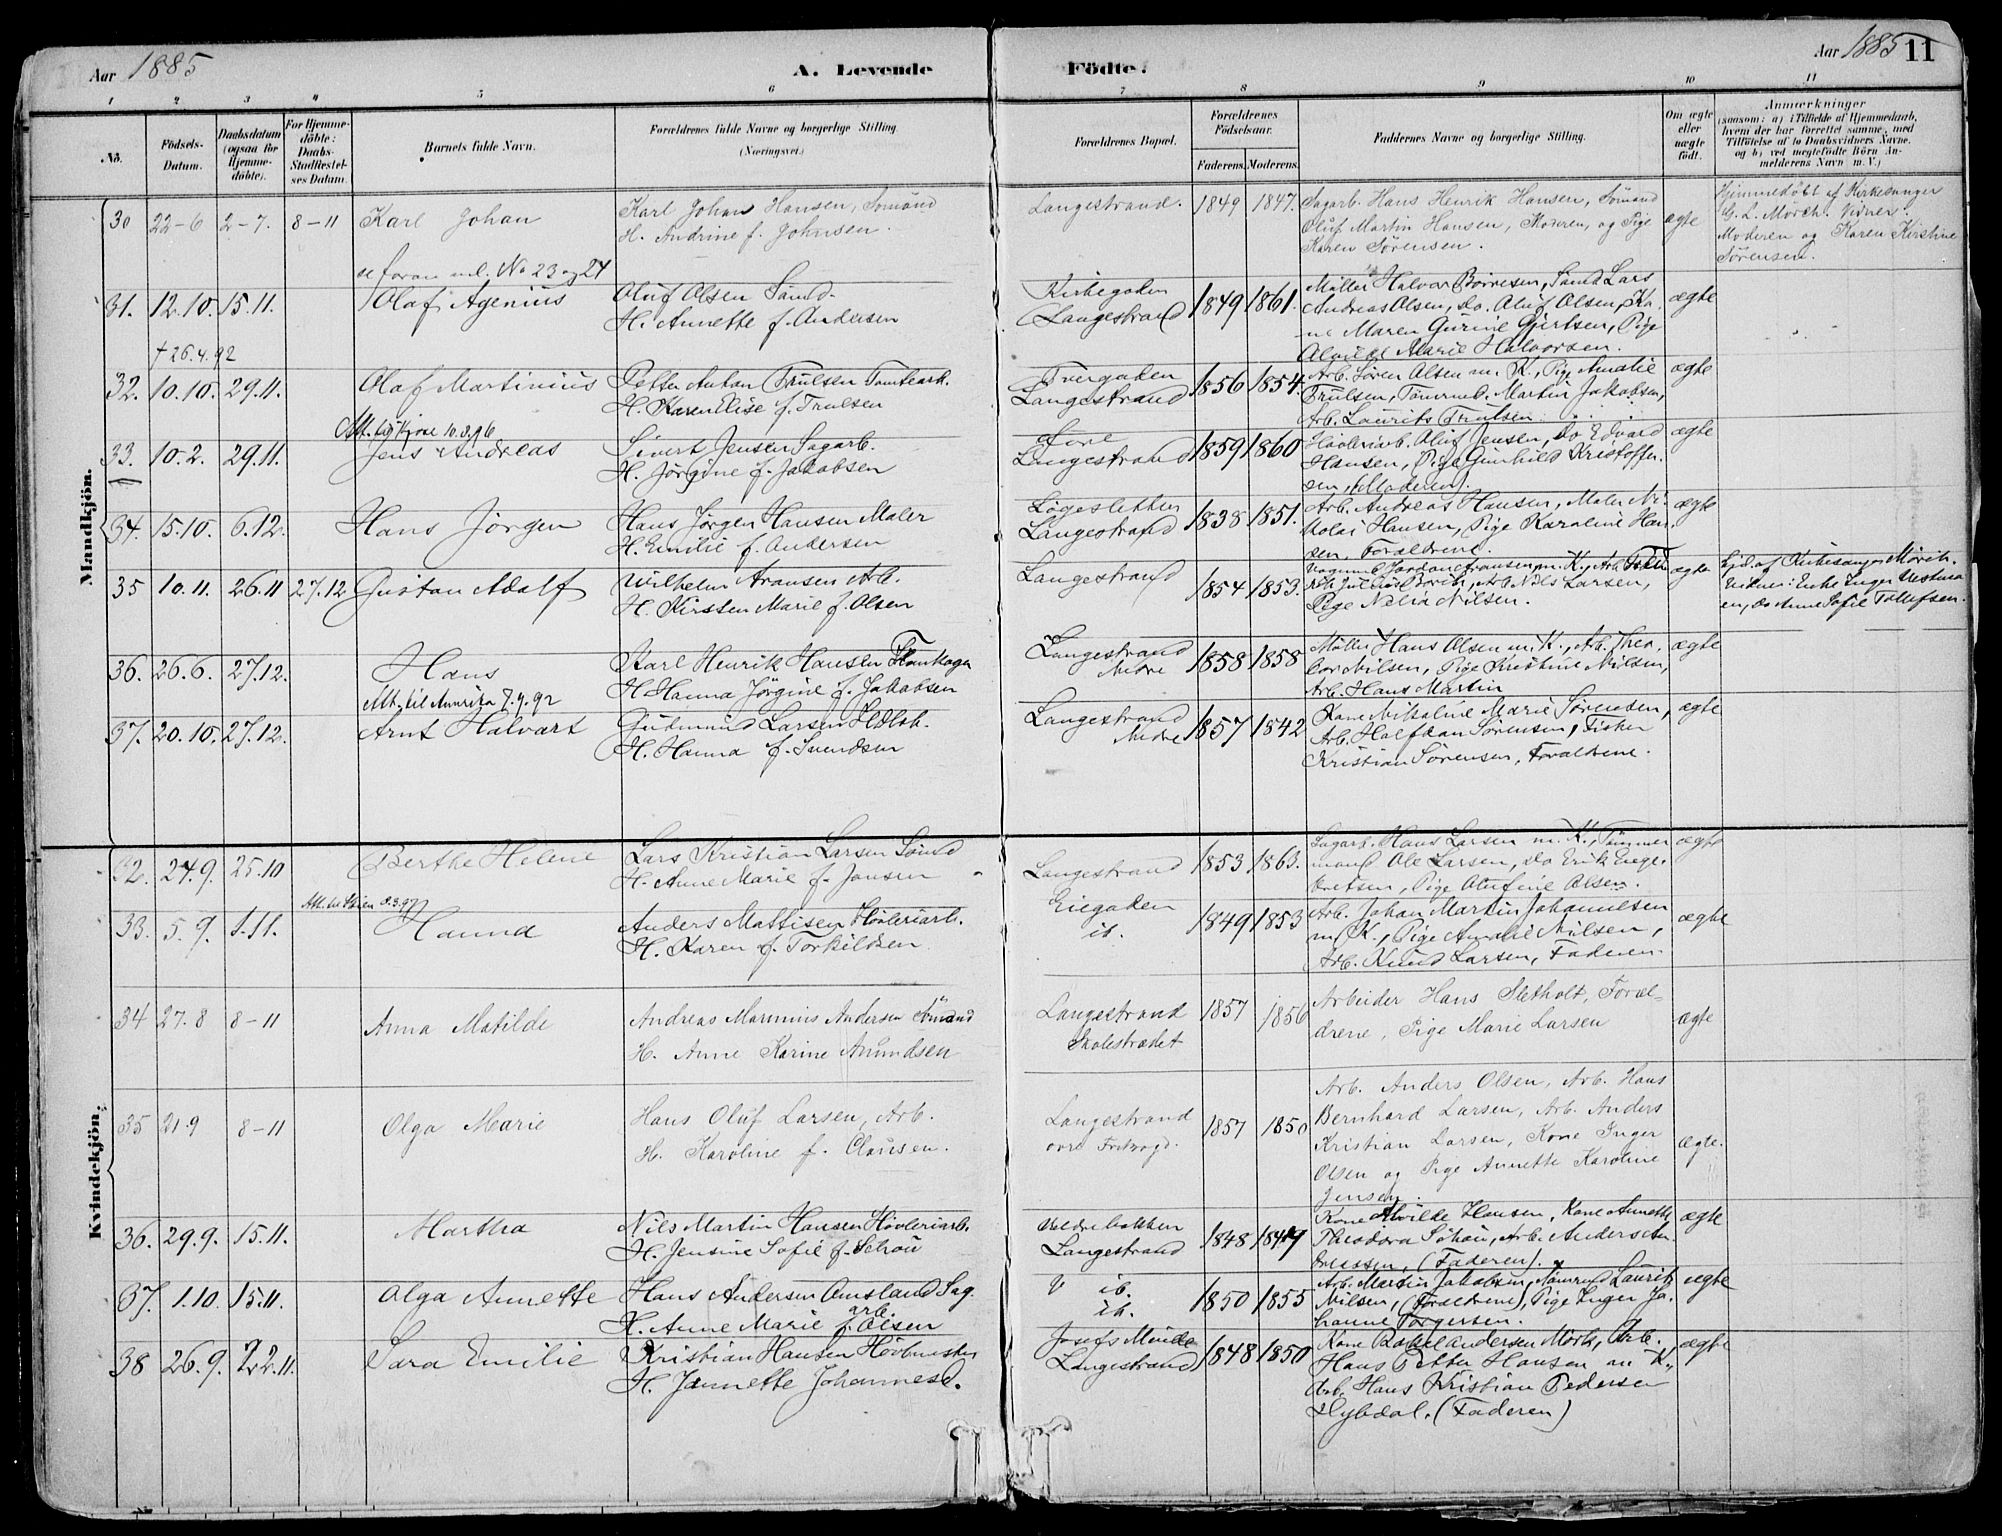 Aar 1885
A. Levende
Födte.
Aar 1885
11
1 2 3 4 5 6 7 8 9 10 11
No.
Födsels-
Datum.
Daabsdatum
(ogsaa for
Hjemme-
döbte).
For Hjemme-
döbte:
Daabs-
Stadfæstel-
ses Datum.
Barnets fulde Navn.
Forældrenes fulde Navne og borgerlige Stilling.
(Næringsvei.)
Forældrenes Bopæl.
Forældrenes
Födselsaar.
Faderens. Moderens.
Faddernes Navne og borgerlige Stilling.
Om ægte
eller
uægte
født.
Anmærkninger
(saasom: a) i Tilfælde af Hjemmedaab,
hvem der har forrettet samme, med
Tilföielse af to Daabsvidners Navne,
og b) ved uægtefödte Börn An-
melderens Navn m. V.)
Mandkjön.
30 22-6 2-7. 8-11 Karl Johan
Karl Johan Hansen, Sömand
H. Andrine f. Johnsen.
Langestrand. 1849 1847.
Sagarb. Hans Henrik Hansen, Sömand
Oluf Martin Hansen, Moderen, og Pige
Karen Sörensen.
ægte
Hjemmedöbt af Kirkesanger
G. L. Mörch. Vidner:
Moderen og Karen Kirstine
Sörensen.
se foran ved No 23 og 24
31. 12.10. 15.11. Olaf Agenius
Oluf Olsen Sömd.
H. Annette f. Andersen
Kirkegaden
Langestrand 1849 1861.
Möller Halvor Börresen, Sömd Lars
Andreas Olsen, do. Oluf Olsen, Ko
ne Maren Gurine Gjertsen, Pige
Alvilde Marie Halvorsen.
ægte
† 26.4.92
32. 10.10. 29.11. Olaf Martinius
Petter Anton Trulsen Tomtearb.
H. Karen Elise f. Trulsen
Tvergaden
Langestrand 1856 1854.
Arb. Sören Olsen m. K., Pige Amalie
Trulsen, Tömmermd. Martin Jakobsen,
Arb. Laurits Trulsen
ægte
33. 10.2. 29.11. Jens Andreas
Sivert Jensen Sagarb.
H. Jörgine f. Jakobsen
Langestrand 1859 1860
Hövleriarb. Oluf Jensen, Do Edvard
Hansen, Pige Gunhild Kristoffer-
sen, (Moderen).
ægte
34. 15.10. 6.12. Hans Jörgen
Hans Jörgen Hansen Maler
H. Emilie f. Andersen
Løgesletten
Langestrand 1838 1851.
Arb. Andreas Hansen, Maler Ni-
kolai Hansen, Pige Karoline Han-
sen, Forældrene.
ægte
35 10.11. 26.11 27.12 Gustav Adolf
Wilhelm Aronsen Arb.
H. Kirsten Marie f. Olsen
Langestrand 1854 1853.
Nils Larsen,
Pige Nelia Nilsen.
ægte
Hjd. af Kirkesanger Mörch.
Vidner: Enke Inger
en, do Anne Sofie Tollefsen.
36. 26.6. 27.12. Hans
Karl Henrik Hansen
H. Hanna Jörgine f. Jakobsen
Langestrand
Nedre 1858 1858
Möller Hans Olsen m. K., Arb. Theo-
dor Nilsen, Pige Kristine Nilsen,
Arb. Hans Martin
ægte
Att. til Amerika 7.4.92
37. 20.10. 27.12. Arnt Halvart
Gudmund Larsen
H. Hanna f. Svendsen
Langestrand
Nedre 1857 1842
Kone Nikoline Marie Sörensen,
Arb. Halfdan Sörensen, Fisker
Kristian Sörensen, Forældrene.
ægte
Kvindekjön.
32. 24.9. 25.10 Berthe Helene
Lars Kristian Larsen Sömd
H. Anne Marie f. Jansen
Langestrand 1853 1863.
Sagarb. Hans Larsen m. K., Tömmer
mand Ole Larsen, do Erik Enge-
bretsen, Pige Olufine Olsen.
ægte
33. 5.9. 1.11. Hanna
Anders Mattisen Hövleriarb.
H. Karen f. Torkildsen.
Eiegaden
ib. 1849 1853
Arb. Johan Martin Johannesen
m K., Pige Amalie Nilsen,
Arb. Knud Larsen, Faderen.
ægte
34 27.8 8-11 Anna Matilde
Andreas Marinius Andersen Sömand
H. Anne Karine Amundsen
Langestrand
Skolestrædet 1857 1856
Arbeider Hans Sletholt, Foræl-
drene, Pige Marie Larsen
ægte
35 21.9 8-11 Olga Marie
Hans Oluf Larsen, Arb.
H. Karoline f. Clausen.
Langestrand
övre Fritzögd. 1857 1850
Arb. Anders Olsen, Arb. Hans
Bernhard Larsen, Arb. Anders
Kristian Larsen, Kone Inger
Olsen og Pige Annette Karoline
Jensen.
ægte.
36. 29.9. 15.11. Martha
Nils Martin Hansen Hövleriarb.
H. Jensine Sofie f. Schou
Langestrand 1848 1849
Kone Alvilde Hansen, Kone Annette
Theodora Schou, Arb. Anders An
dreassen, (Faderen).
ægte
37. 1.10. 15.11. Olga Annette
Hans Andersen Omsland Sag
arb.
H. Anne Marie f. Olsen
ib.
ib. 1850 1855
Arb. Martin Jakobsen, Sömand Laurits
Nilsen, (Forældrene), Pige Inger Jo-
hanne Torgersen.
ægte
38 26.9. 22.11. Sara Emilie
Kristian Hansen Hövlmester
H. Jannette Johannesd.
Josefs Minde
Langestrand 1848 1850
Kone Rakel Andersen Mörk, Arb.
Hans Petter Hansen m K.,
Arb. Hans Kristian Pedersen
Hybdal. (Faderen)
ægte